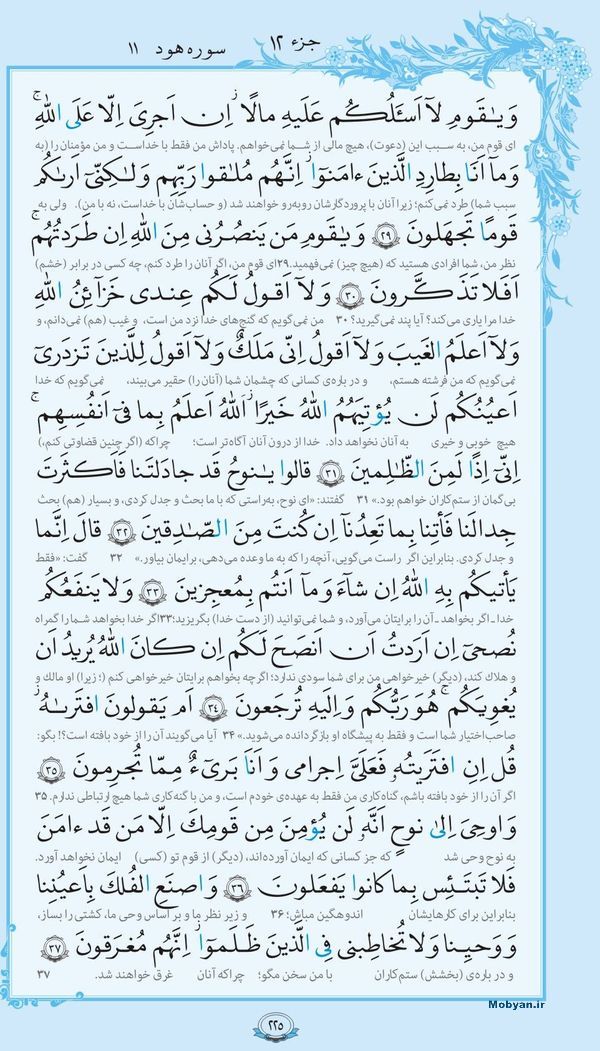 جزء ۱۲ سوره هود ۱۱
وَيٰقَومِ لآ اَسـَٔلُكُم عَلَيهِ مالًا اِن اَجرِىَ اِلّا عَلَى اللهِ
ای قوم من، به سبب این (دعوت)، هیچ مالی از شما نمی‌خواهم. پاداش من فقط با خداست و من مؤمنان را (به
وَمآ اَنَا بِطارِدِ الَّذينَ ءامَنوا اِنَّهُم مُلٰقوا رَبِّهِم وَلٰكِنّى اَرىٰكُم
سبب شما) طرد نمی‌کنم؛ زیرا آنان با پروردگارشان روبه‌رو خواهند شد (و حساب‌شان با خداست، نه با من). ولی به
قَومًا تَجهَلونَ ۲۹ وَيٰقَومِ مَن يَنصُرُنى مِنَ اللهِ اِن طَرَدتُهُم
نظر من، شما افرادی هستید که (هیچ چیز) نمی‌فهمید.۲۹ای قوم من، اگر آنان را طرد کنم، چه کسی در برابر (خشم)
اَفَلا تَذَكَّرونَ ۳۰ وَلآ اَقولُ لَكُم عِندى خَزائِنُ اللهِ
خدا مرا یاری می‌کند؟ آیا پند نمی‌گیرید؟ ۳۰ من نمی‌گویم که گنج‌های خدا نزد من است، و غیب (هم) نمی‌دانم، و
وَلآ اَعلَمُ الغَيبَ وَلآ اَقولُ اِنّى مَلَكٌ وَلآ اَقولُ لِلَّذينَ تَزدَرىٓ
نمی‌گویم که من فرشته هستم، و در باره‌ی کسانی که چشمان شما (آنان را) حقیر می‌بیند، نمی‌گویم که خدا
اَعيُنُكُم لَن يُؤتِيَهُمُ اللهُ خَيرًا اَللهُ اَعلَمُ بِما فىٓ اَنفُسِهِم
هیچ خوبی و خیری به آنان نخواهد داد. خدا از درون آنان آگاه‌تر است؛ چراکه (اگر چنین قضاوتی کنم،)
اِنّىٓ اِذًا لَمِنَ الظّٰلِمينَ ۳۱ قالوا يٰنوحُ قَد جادَلتَنا فَاَكثَرتَ
بی‌گمان از ستم‌کاران خواهم بود.» ۳۱ گفتند: «ای نوح، به‌راستی که با ما بحث و جدل کردی، و بسیار (هم) بحث
جِدالَنا فَأتِنا بِما تَعِدُنآ اِن كُنتَ مِنَ الصّٰدِقينَ ۳۲ قالَ اِنَّما
و جدل کردی. بنابراین اگر راست می‌گویی، آنچه را که به ما وعده می‌دهی، برایمان بیاور.» ۳۲ گفت: «فقط
يَأتيكُم بِهِ اللهُ اِن شآءَ وَمآ اَنتُم بِمُعجِزينَ ۳۳ وَلا يَنفَعُكُم
خدا ـ اگر بخواهد ـ آن را برایتان می‌آورد، و شما نمی‌توانید (از دست خدا) بگریزید؛۳۳اگر خدا بخواهد شما را گمراه
نُصحىٓ اِن اَرَدتُ اَن اَنصَحَ لَكُم اِن كانَ اللهُ يُريدُ اَن
و هلاک کند، (دیگر) خیرخواهی من برای شما سودی ندارد؛ اگرچه بخواهم برایتان خیرخواهی کنم (؛ زیرا) او مالک و
يُغوِيَكُم هُوَ رَبُّكُم وَاِلَيهِ تُرجَعونَ ۳۴ اَم يَقولونَ افتَرىٰهُ
صاحب‌اختیار شما است و فقط به پیشگاه او بازگردانده می‌شوید.» ۳۴ آیا می‌گویند آن را از خود بافته است؟! بگو:
قُل اِنِ افتَرَيتُهُ فَعَلَىَّ اِجرامى وَاَنَا بَرىٓءٌ مِمّا تُجرِمونَ ۳۵
اگر آن را از خود بافته باشم، گناه‌کاری من فقط به عهده‌ی خودم است، و من با گنه‌کاری شما هیچ ارتباطی ندارم. ۳۵
وَاوحِىَ اِلىٰ نوحٍ اَنَّهُ لَن يُؤمِنَ مِن قَومِكَ اِلّا مَن قَد ءامَنَ
به نوح وحی شد که جز کسانی که ایمان آورده‌اند، (دیگر) از قوم تو (کسی) ایمان نخواهد آورد.
فَلا تَبتَئِس بِما كانوا يَفعَلونَ ۳۶ وَاصنَعِ الفُلكَ بِاَعيُنِنا
بنابراین برای کارهایشان اندوهگین مباش؛ ۳۶ و زیر نظر ما و بر اساس وحی ما، کشتی را بساز،
وَوَحيِنا وَلا تُخاطِبنى فِى الَّذينَ ظَلَموا اِنَّهُم مُغرَقونَ ۳۷
و در باره‌ی (بخشش) ستم‌کاران با من سخن مگو؛ چراکه آنان غرق خواهند شد. ۳۷
Mobyan.ir
۲۲۵